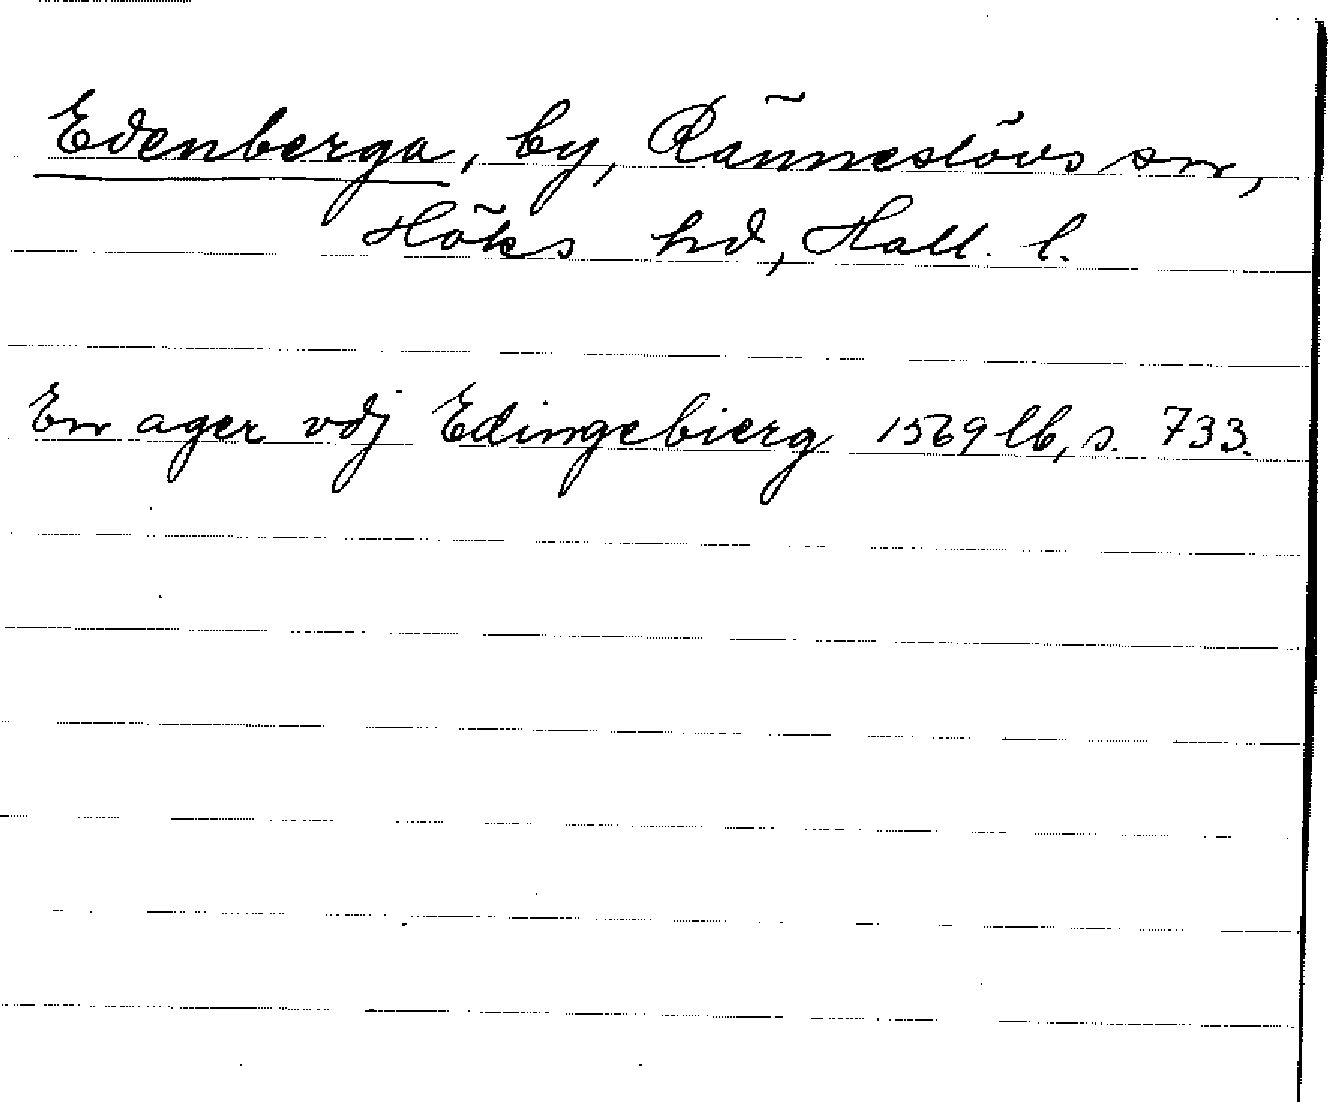 Edenberga, by, Ränneslövs sn,
Höks hd, Hall. l.
En ager vdj Edingebierg 1569 lb, s. 733.